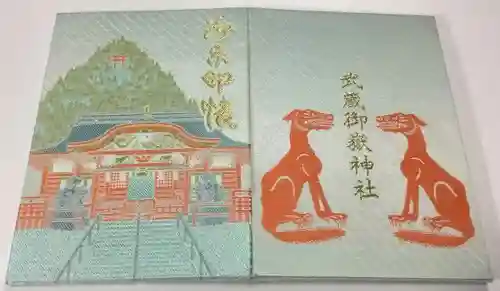 御朱印帳
武蔵御嶽神社